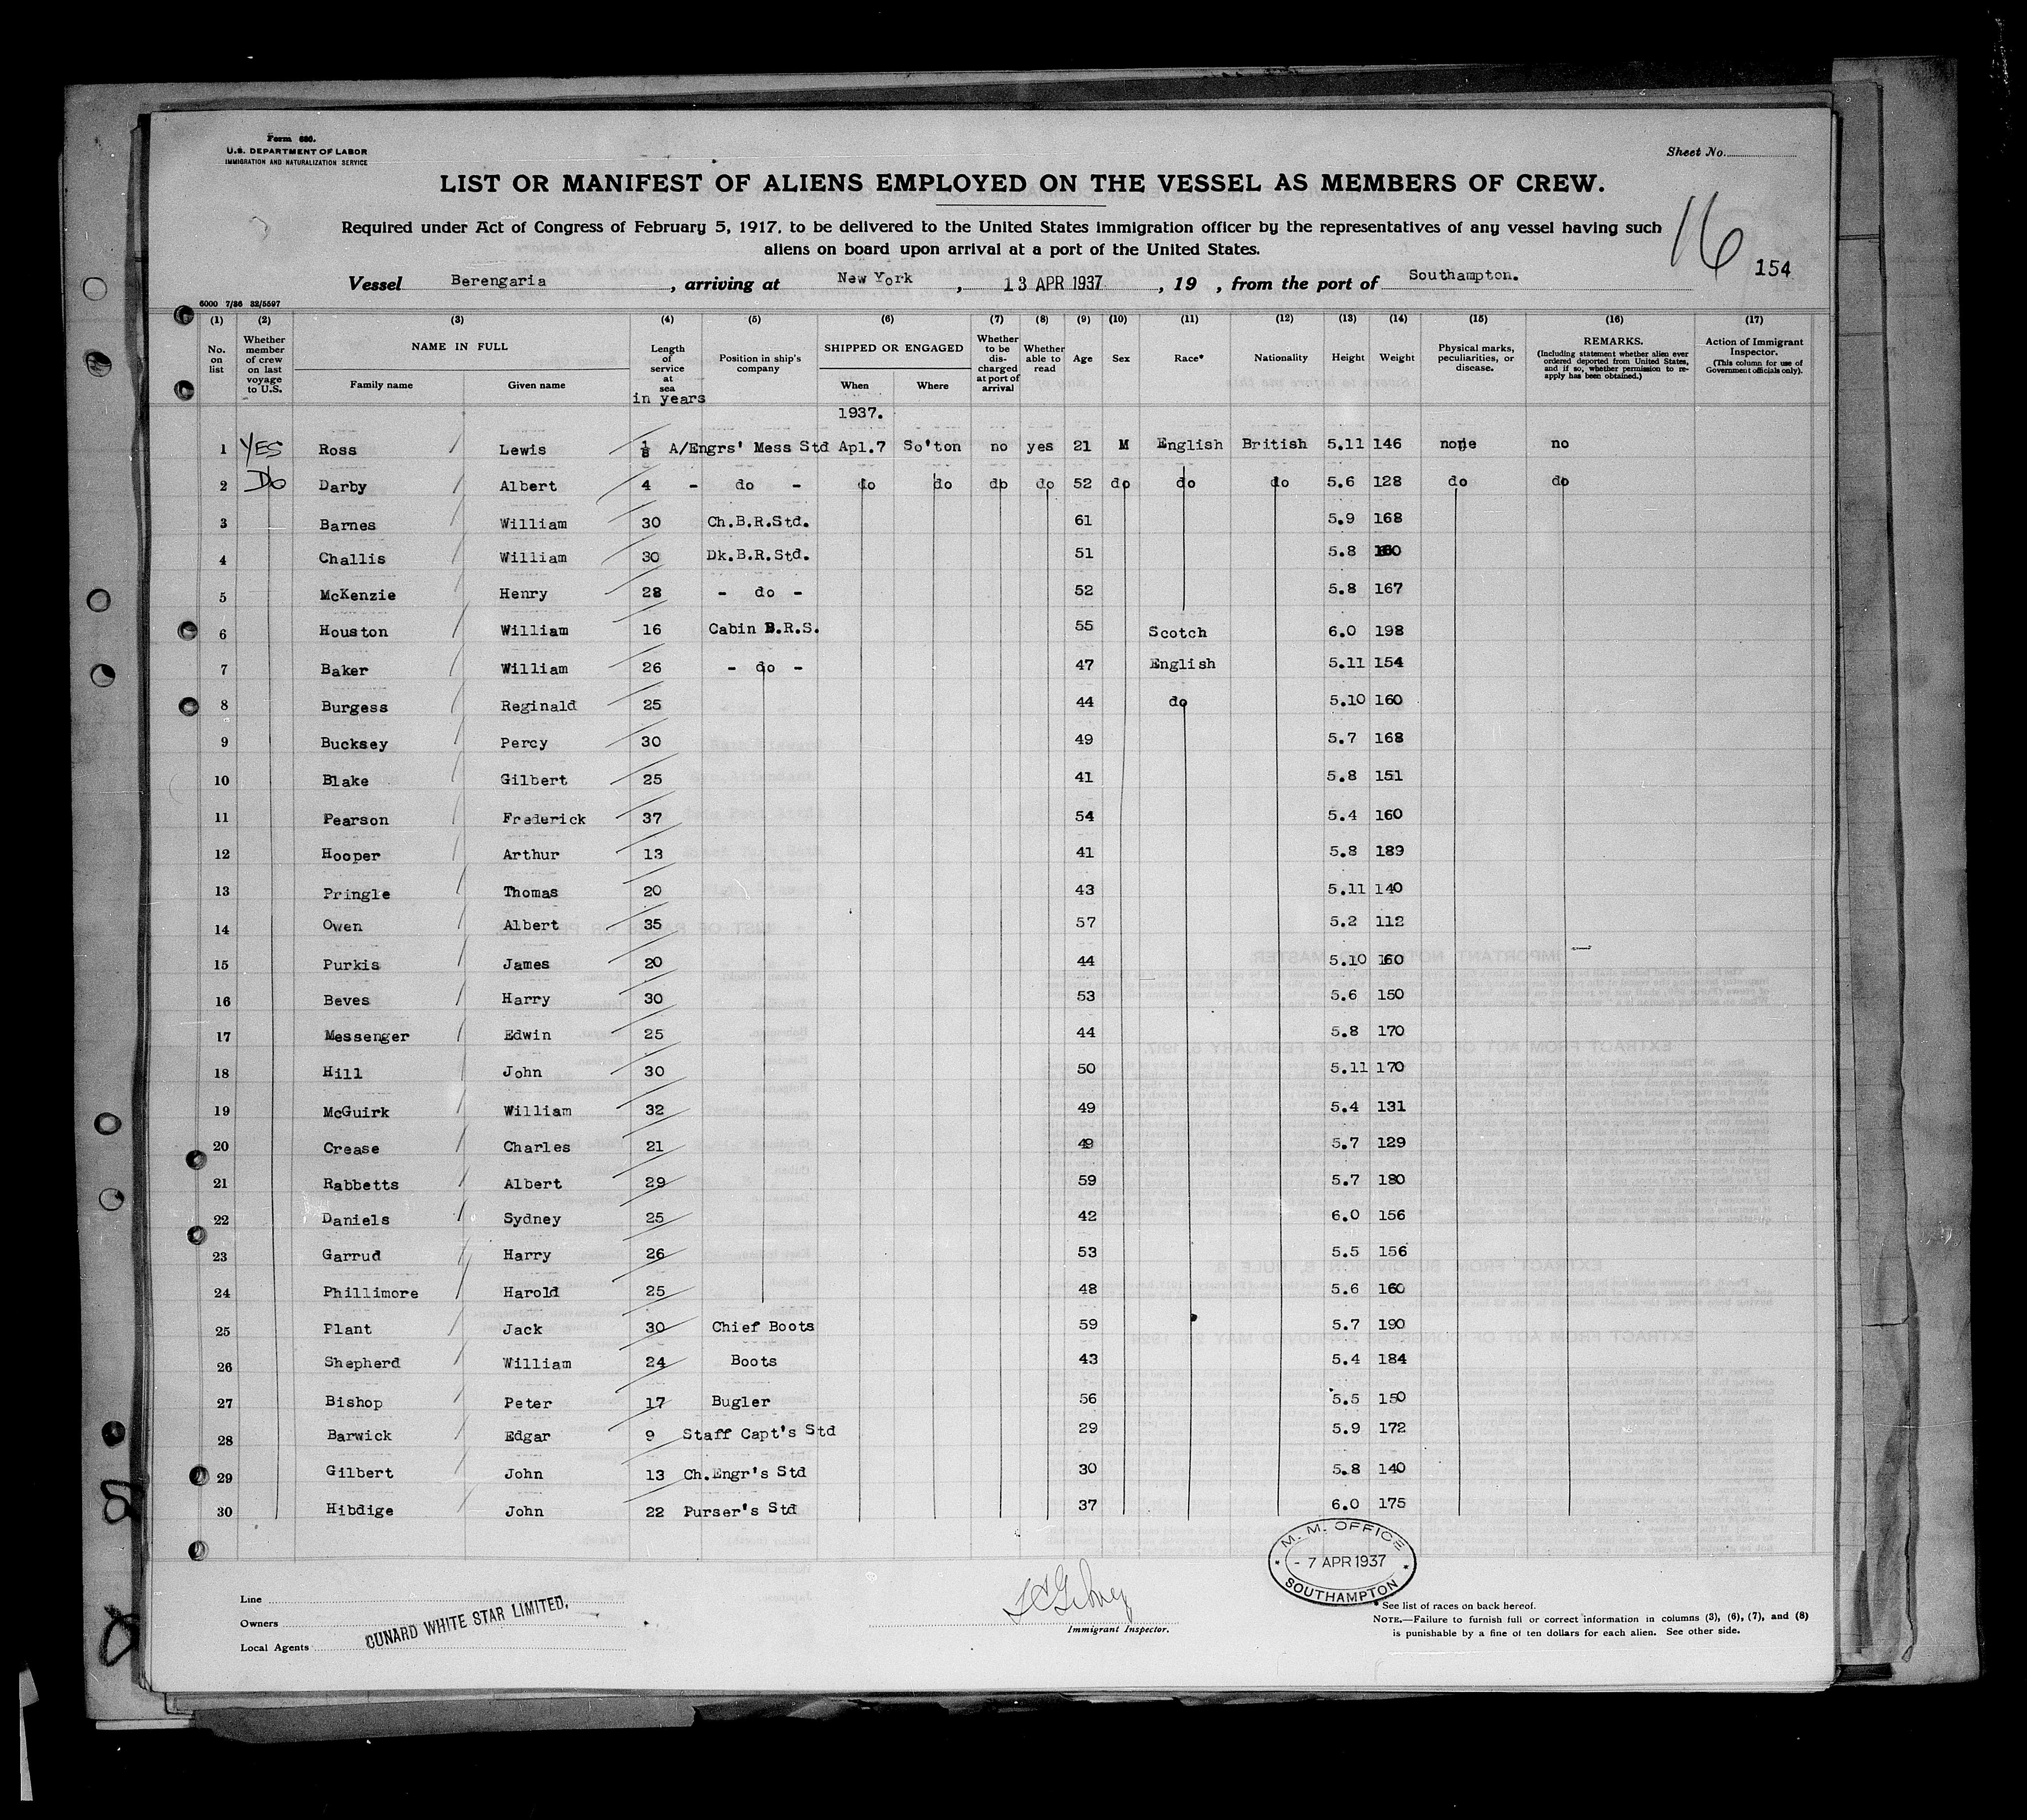 Form 680.
U.S. DEPARTMENT OF LABOR
IMMIGRATION AND NATURALIZATION SERVICE
Sheet No.
LIST OR MANIFEST OF ALIENS EMPLOYED ON THE VESSEL AS MEMBERS OF CREW.
Required under Act of Congress of February 5, 1917, to be delivered to the United States immigration officer by the representatives of any vessel having such
aliens on board upon arrival at a port of the United States.
16
154
Vessel Berengaria , arriving at New York , 13 APR 1937 , 19 , from the port of Southampton.
6000 7/36 32/5597
(1) (2) (3) (4) (5) (6) (7) (8) (9) (10) (11) (12) (13) (14) (15) (16) (17)
No. on list
Whether member of crew on last voyage to U.S.
NAME IN FULL
Family name Given name
Length of service at sea in years
Position in ship's company
SHIPPED OR ENGAGED
When Where
Whether to be discharged at port of arrival
Whether able to read
Age Sex Race* Nationality Height Weight
Physical marks, peculiarities, or disease.
REMARKS.
(Including statement whether alien ever ordered deported from United States, and if so, whether permission to reapply has been obtained.)
Action of Immigrant Inspector.
(This column for use of Government officials only).
1937.
1 YES Ross Lewis 1/8 A/Engrs' Mess Std Apl.7 So'ton no yes 21 M English British 5.11 146 none no
2 Do Darby Albert 4 - do - do do do do 52 do do do 5.6 128 do do
3 Barnes William 30 Ch.B.R.Std. 61 5.9 168
4 Challis William 30 Dk.B.R.Std. 51 5.8
5 McKenzie Henry 28 - do - 52 5.8 167
6 Houston William 16 Cabin B.R.S. 55 Scotch 6.0 198
7 Baker William 26 - do - 47 English 5.11 154
8 Burgess Reginald 25 44 do 5.10 160
9 Bucksey Percy 30 49 5.7 168
10 Blake Gilbert 25 41 5.8 151
11 Pearson Frederick 37 54 5.4 160
12 Hooper Arthur 13 41 5.8 189
13 Pringle Thomas 20 43 5.11 140
14 Owen Albert 35 57 5.2 112
15 Purkis James 20 44 5.10 160
16 Beves Harry 30 53 5.6 150
17 Messenger Edwin 25 44 5.8 170
18 Hill John 30 50 5.11 170
19 McGuirk William 32 49 5.4 131
20 Crease Charles 21 49 5.7 129
21 Rabbetts Albert 29 59 5.7 180
22 Daniels Sydney 25 42 6.0 156
23 Garrud Harry 26 53 5.5 156
24 Phillimore Harold 25 48 5.6 160
25 Plant Jack 30 Chief Boots 59 5.7 190
26 Shepherd William 24 Boots 43 5.4 184
27 Bishop Peter 17 Bugler 56 5.5 150
28 Barwick Edgar 9 Staff Capt's Std 29 5.9 172
29 Gilbert John 13 Ch.Engr's Std 30 5.8 140
30 Hibdige John 22 Purser's Std 37 6.0 175
M. M. OFFICE
- 7 APR 1937
SOUTHAMPTON
Line
Owners
Local Agents
CUNARD WHITE STAR LIMITED.
Immigrant Inspector.
* See list of races on back hereof.
NOTE.—Failure to furnish full or correct information in columns (3), (6), (7), and (8)
is punishable by a fine of ten dollars for each alien. See other side.